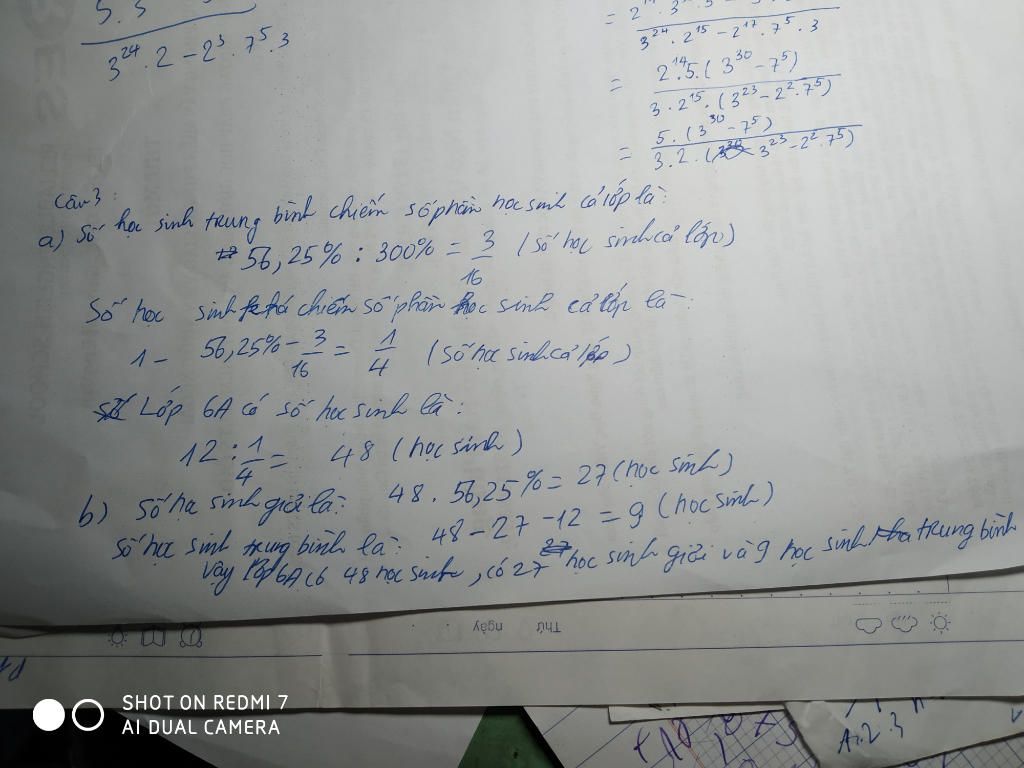 3²⁴ . 2 - 2³ . 7⁵ . 3
3²⁴ . 2¹⁵ - 2¹⁷ . 7⁵ . 3
= 2¹⁴ . 5 . (3³⁰ - 7⁵)
3 . 2¹⁵ . (3²³ - 2² . 7⁵)
= 5 . (3³⁰ - 7⁵)
3 . 2 . ( 3²³ - 2² . 7⁵)
Câu 3 :
a) Số học sinh trung bình chiếm số phần học sinh cả lớp là :
56,25% : 300% = 3/16 (số học sinh cả lớp)
Số học sinh khá chiếm số phần học sinh cả lớp là :
1 - 56,25% - 3/16 = 1/4 (số học sinh cả lớp)
Lớp 6A có số học sinh là :
12 : 1/4 = 48 (học sinh)
b) Số học sinh giỏi là : 48 . 56,25% = 27 (học sinh)
Số học sinh trung bình là : 48 - 27 - 12 = 9 (học sinh)
Vậy lớp 6A có 48 học sinh, có 27 học sinh giỏi và 9 học sinh trung bình
Thứ ngày
SHOT ON REDMI 7
AI DUAL CAMERA
A.2.3